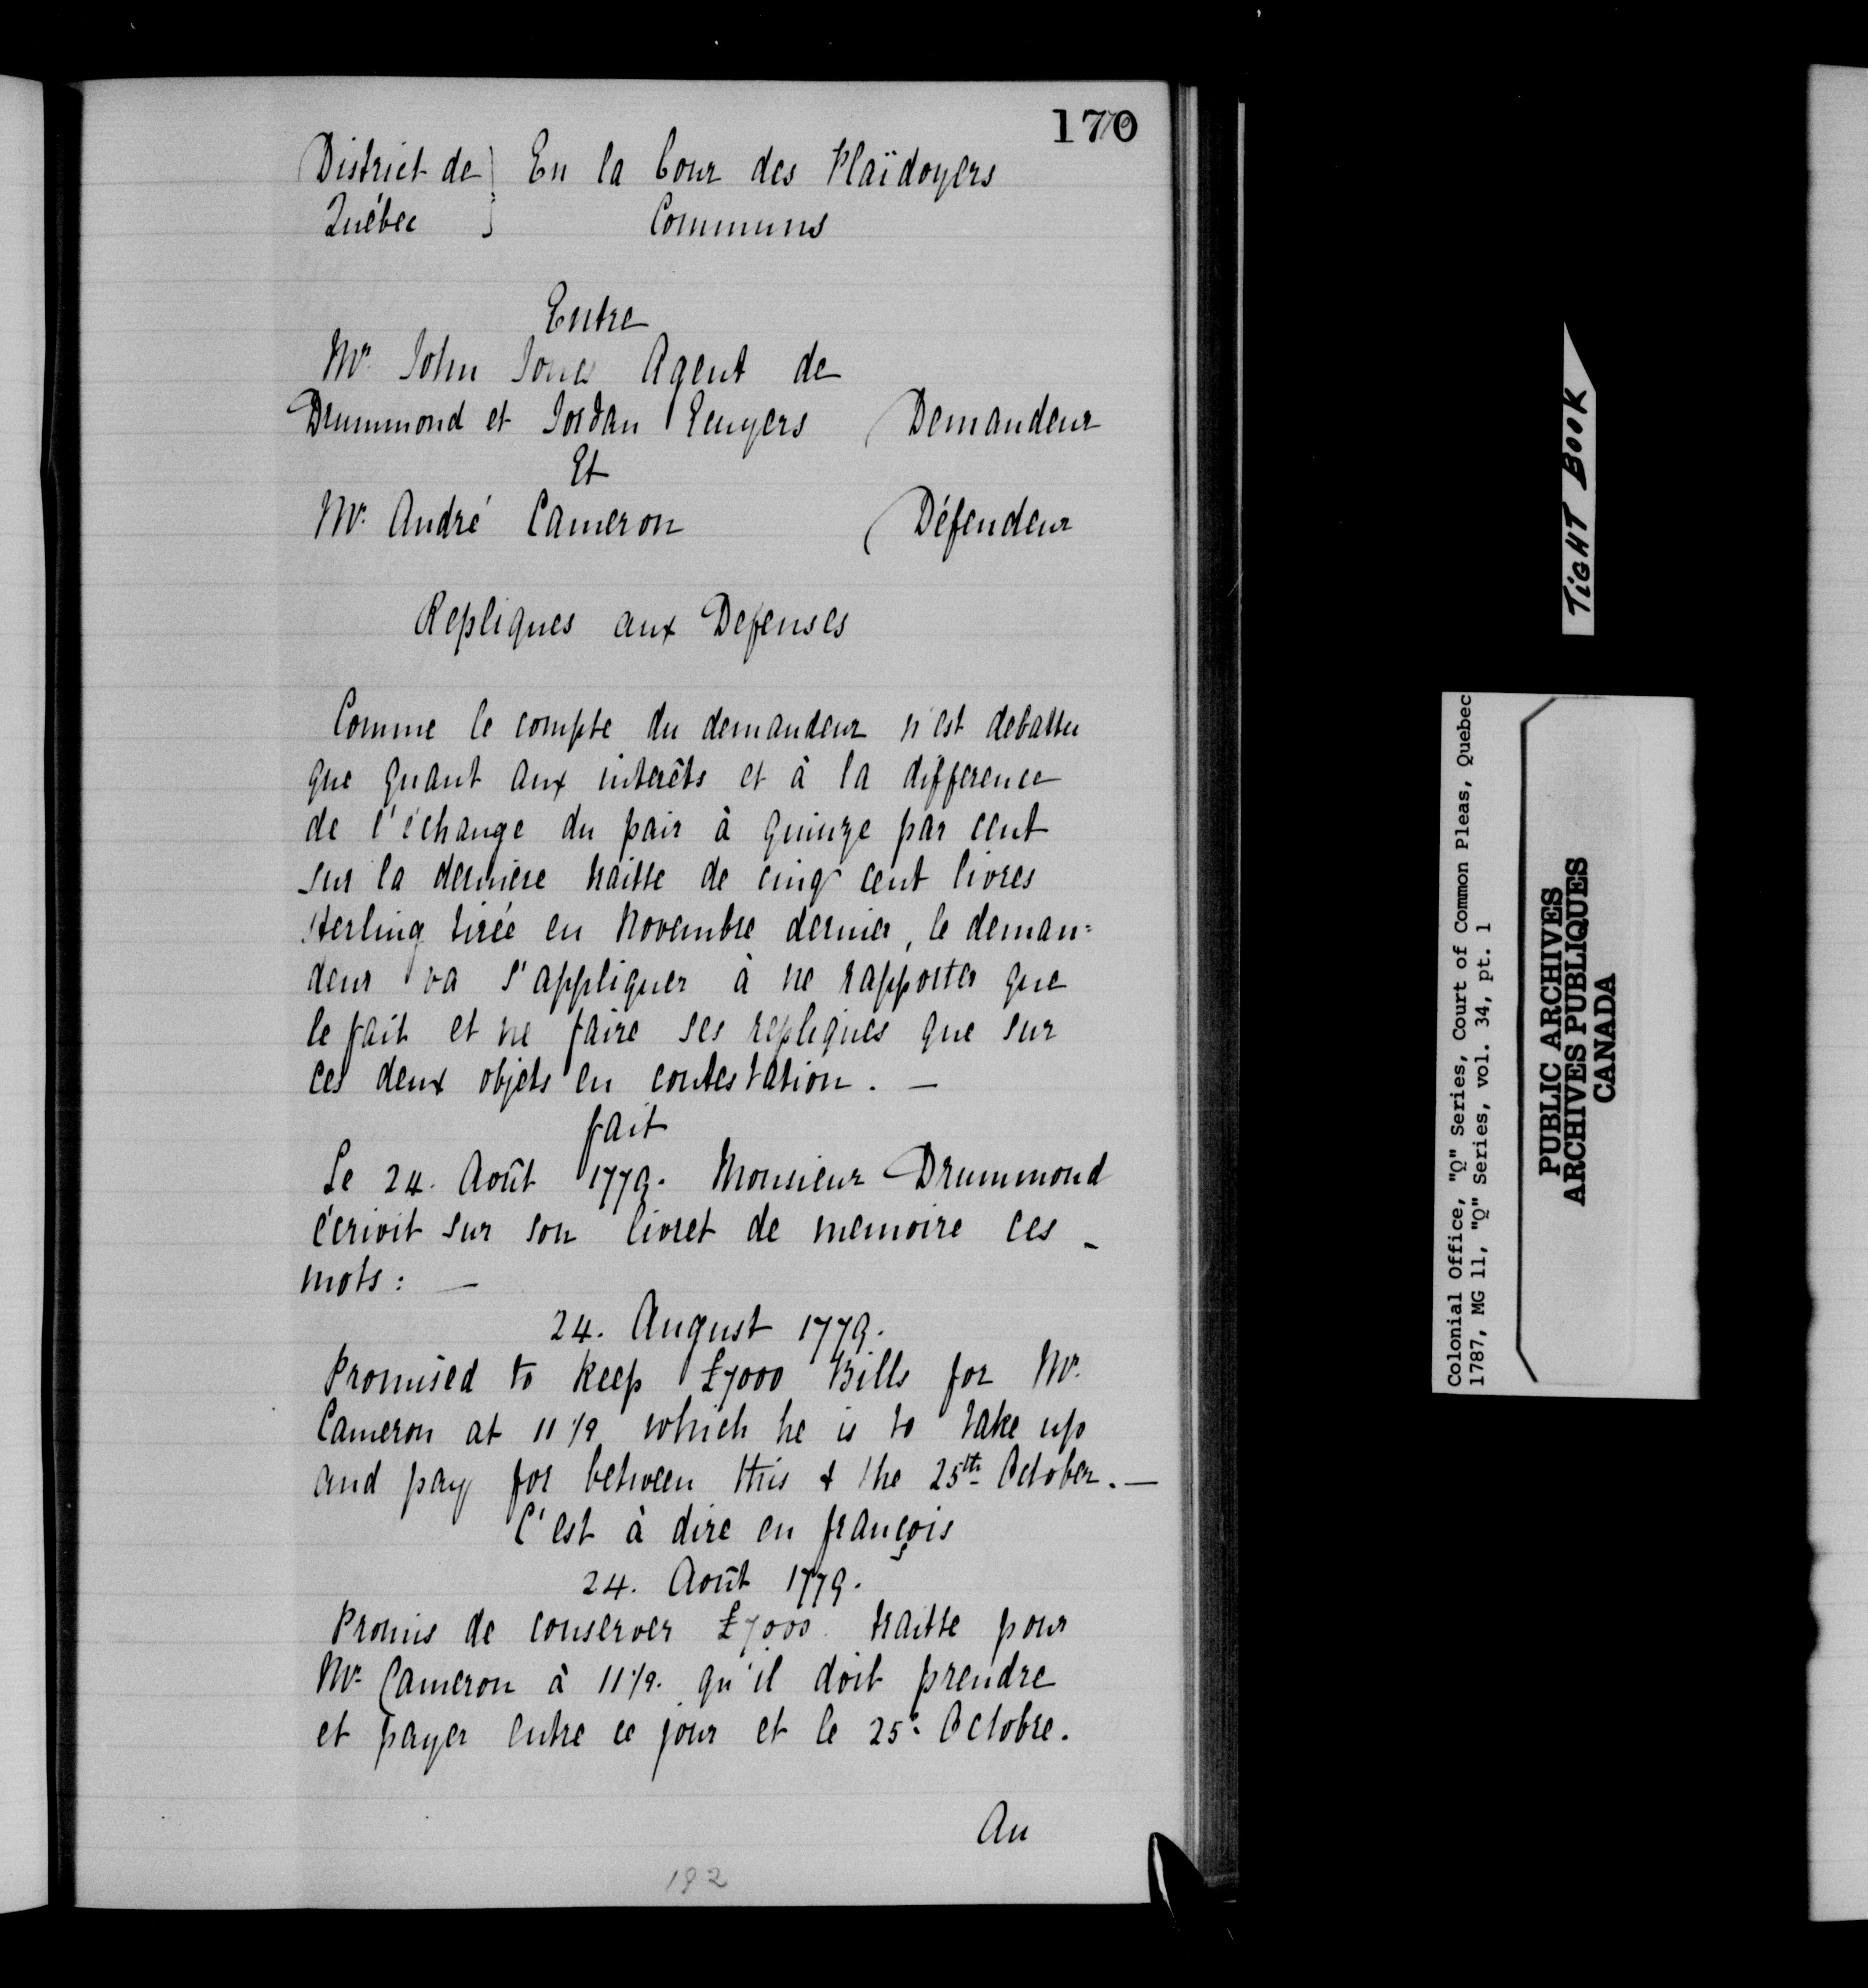 170
District de } En la Cour des Plaïdoyers
Québec } Communs
Entre
Mr. John Jones Agent de
Drummond et Jordan Ecuyers ( Demandeur
Et
Mr. André Cameron ( Défendeur
Repliques aux Defenses
Comme le compte du demandeur n'est debattu
que quant aux interêts et à la difference
de l'échange du pair à quinze par cent
sur la derniere traitte de cinq cent livres
Sterling tirée en Novembre dernier, le deman=
deur va s'appliquer à ne rapporter que
le fait et ne faire ses repliques que sur
ces deux objets en contestation. —
fait
Le 24. Août 1779. Monsieur Drummond
écrivit sur son livret de memoire ces -
mots: —
24. August 1779.
Promised to keep £7000 Bills for Mr.
Cameron at 11 1/2 which he is to take up
and pay for between this & the 25th October. —
C'est à dire en françois
24. Août 1779.
Promis de conserver £7000. traitte pour
Mr. Cameron à 11 1/2. qu'il doit prendre
et payer entre ce jour et le 25e. Octobre.
Au
182
TIGHT BOOK
Colonial Office, "Q" Series, Court of Common Pleas, Quebec
1787, MG 11, "Q" Series, vol. 34, pt. 1
PUBLIC ARCHIVES
ARCHIVES PUBLIQUES
CANADA